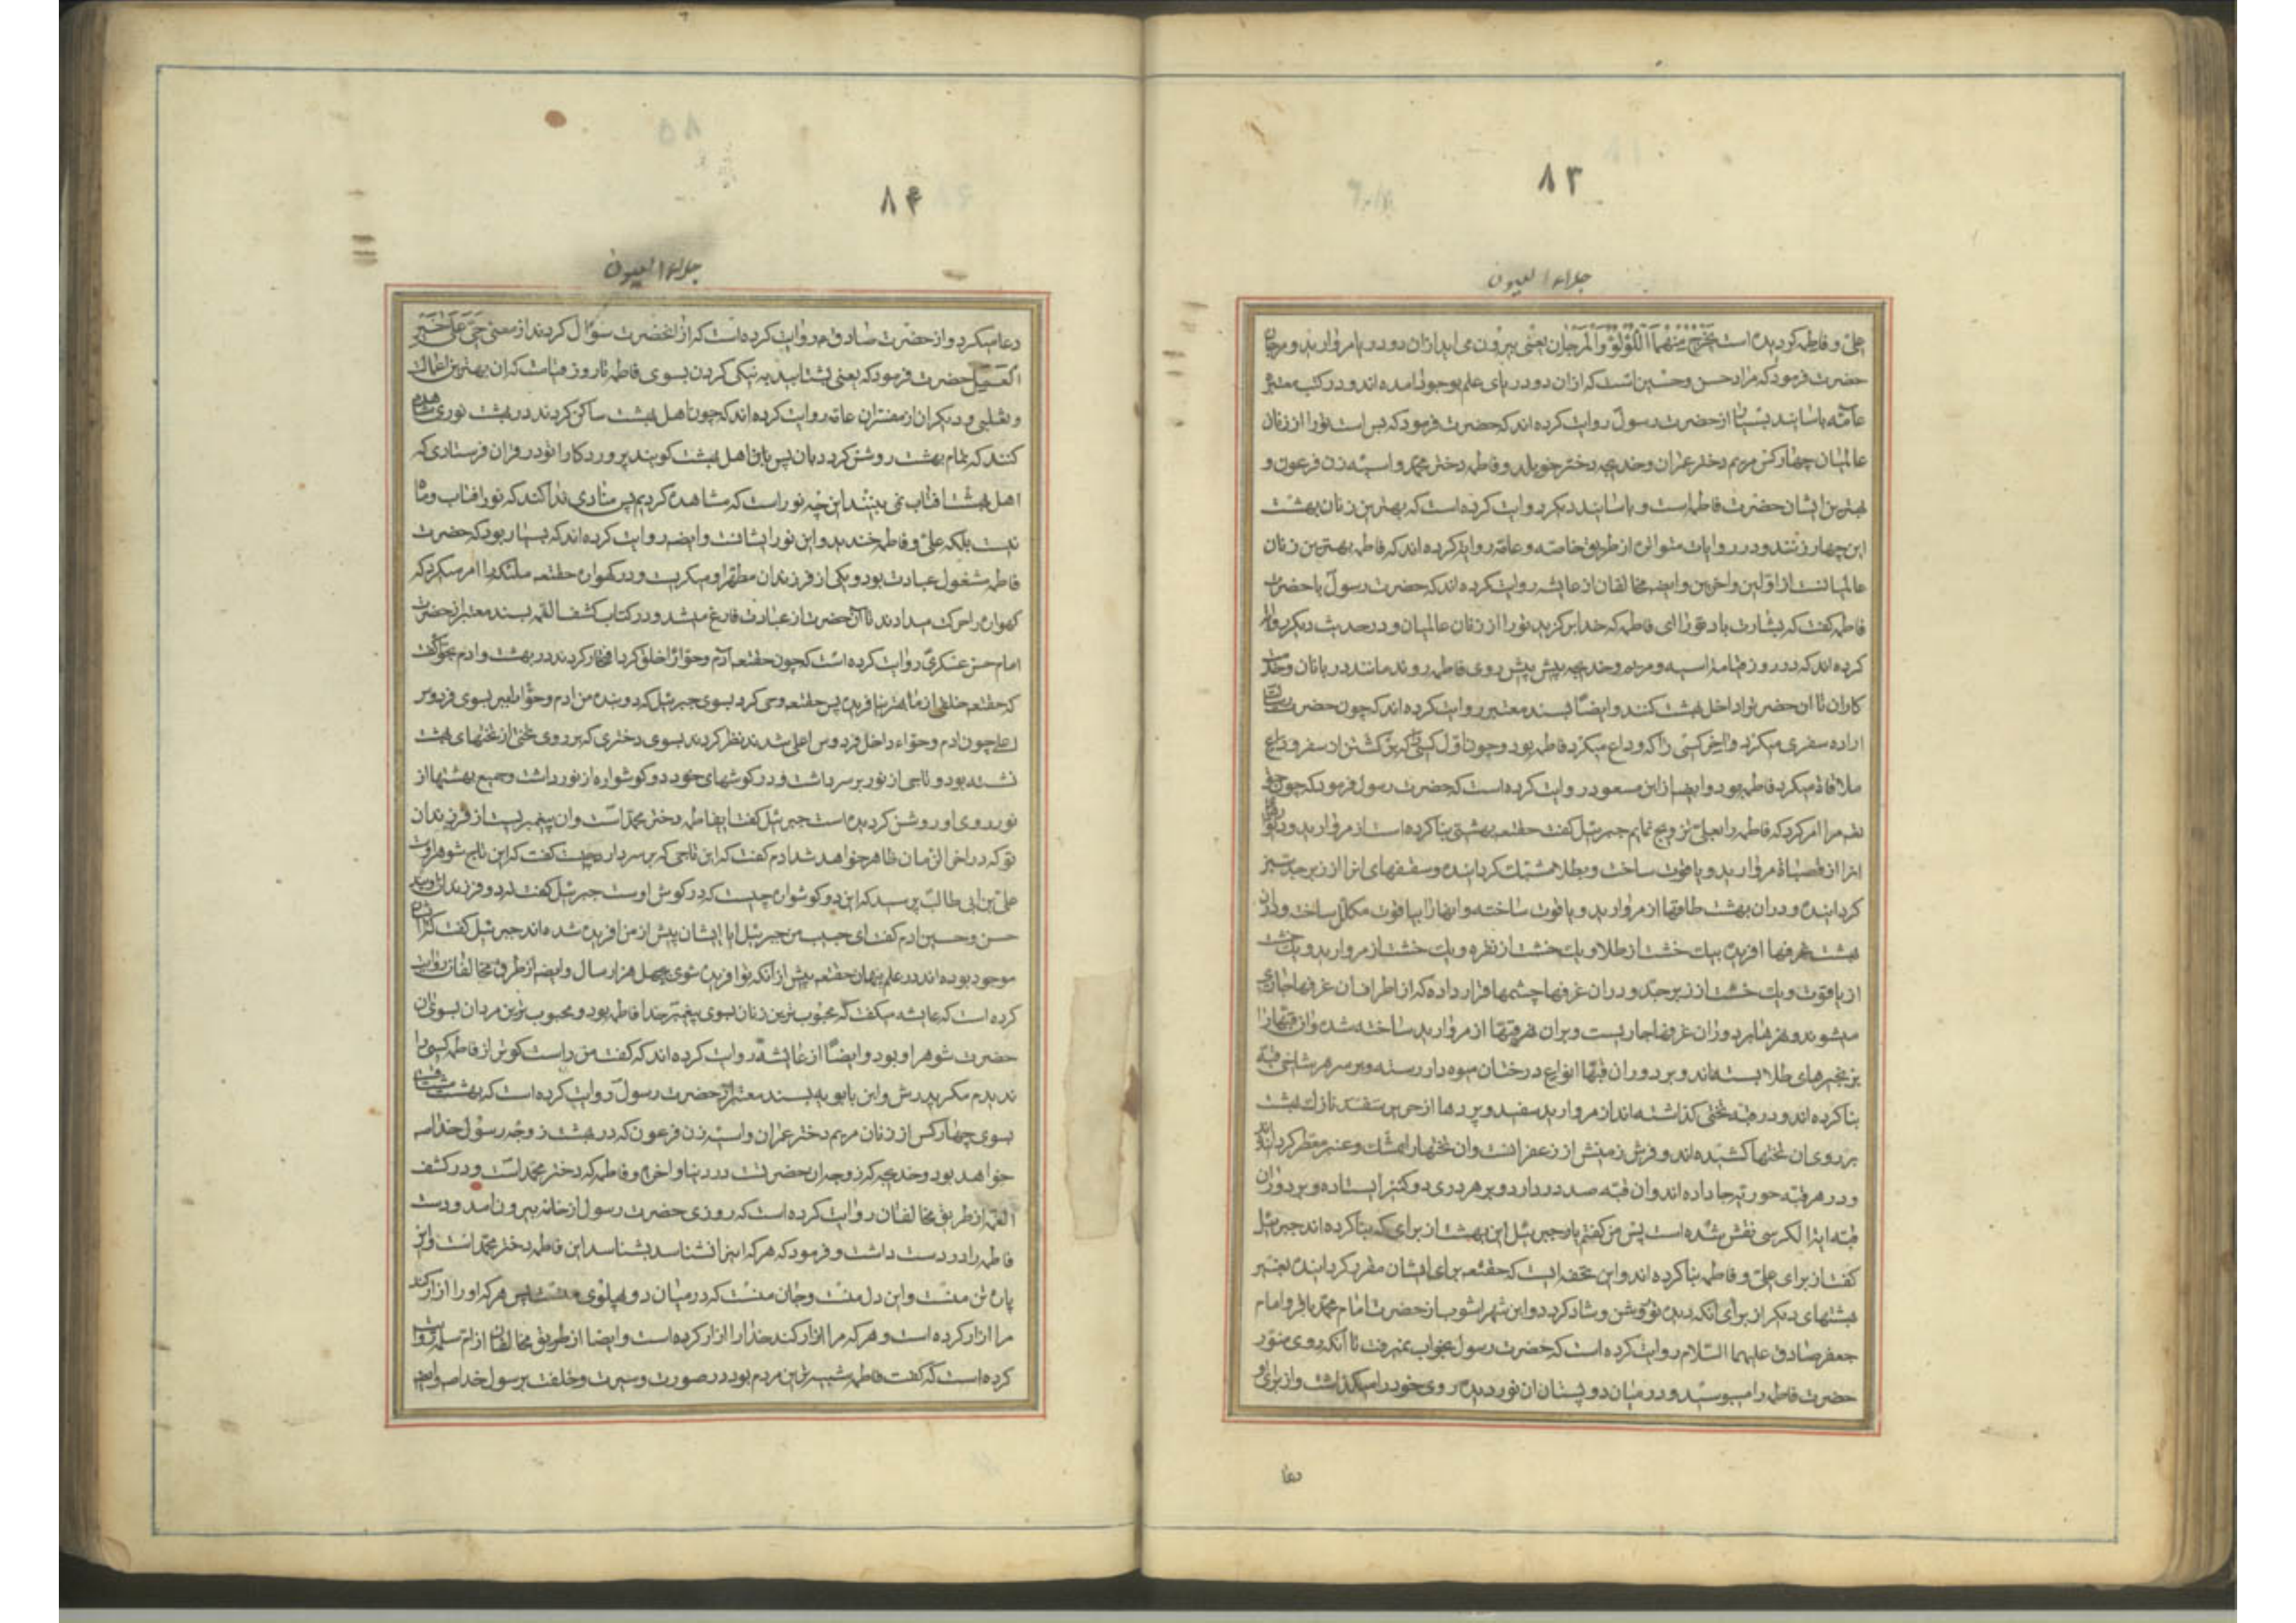 ۸۳
جلاء العیون
علی و فاطمه کردیده است یخرج منهما اللؤلؤ والمرجان یعنی بیرون می اید ازان دو دریا مروارید و مرجان
حضرت فرمود که مراد حسن و حسین است که ازان دو دریای علم بوجود آمده اند و در کتب معتبر
عامه باسانید بسیار از حضرت رسول روایت کرده اند که حضرت فرمود که بس است تو را از زنان
عالمیان چهار کس مریم دختر عمران و خدیجه دختر خویلد و فاطمه دختر محمد و اسیه زن فرعون و
بهترین ایشان حضرت فاطمه است و باسانید دیکر روایت کرده است که بهترین زنان بهشت
این چهار زنند و در روایات متواتره از طریق خاصه و عامه روایت کرده اند که فاطمه بهترین زنان
عالمیانست از اولین و اخرین و ایضه مخالفان از عایشه روایت کرده اند که حضرت رسول با حضرت
فاطمه کفت که بشارت باد تو را ای فاطمه که خدا برکزید تو را از زنان عالمیان و در حدیث دیکر روایت
کرده اند که در روز قیامة اسیه و مریم و خدیجه پیش پیش روی فاطمه روند مانند دربانان و خدمت
کاران تا ان حضرت را داخل بهشت کنند و ایضاً بسند معتبر روایت کرده اند که چون حضرت رسالت
اراده سفری میکرد و اخر کسی را که وداع میکرد فاطمه بود و چون اول کسی که بر کشتن از سفر
ملاقاة میکرد فاطمه بود و ایضا از ابن مسعود روایت کرده است که حضرت رسول فرمود که چون حق
تعه مرا امر کرد که فاطمه را بعلی تزویج نمایم جبرئیل کفت حقتعه بهشتی بنا کرده است از مروارید و
انرا از قصباة مروارید و یاقوت ساخت و بطلا مشبک کردانیده و سقفهای انرا از زبرجد سبز
کردانیده و دران بهشت طاقها از مروارید و یاقوت ساخته و انها را بیاقوت مکلل ساخت و دران
بهشت غرفها افریده بیک خشت از طلا و یک خشت از نقره و یک خشت از مروارید و یک خشت
از یاقوت و یک خشت از زبرجد و دران غرفها چشمها قرار داده که از اطراف ان غرفها جاری
میشوند و نهرها بر دوران غرفها جاریست و بران نهر قبها از مروارید ساخته شده و ان قبها را
بزنجیرهای طلا بسته اند و بر دوران قبها انواع درختان میوه دار رسته و بر سر هر شاخی قبه
بنا کرده اند و در هر قبه تختی کذاشته اند از مروارید سفید و پردها از حریر سفید نازک بهشت
بر روی ان تختها کشیده اند و فرش زمینش از زعفرانست وان تختها را بمشک و عنبر معطر کردانیده اند
و در هر قبه حوریه جا داده اند وان قبه صد در دارد و بر هر دری دو کنیز ایستاده و بر دوران
قبه ایة الکرسی نقش شده است پس من کفتم یا جبرئیل این بهشت از برای که بنا کرده اند جبرئیل
کفت از برای علی و فاطمه بنا کرده اند و این تحفه ایست که حقتعه برای ایشان مقرر کردانیده بغیر
بهشتهای دیکر از برای انکه دیده تو روشن و شاد کردد و ابن شهراشوب از حضرت امام محمد باقر و امام
جعفر صادق علیهما السلام روایت کرده است که حضرت رسول بخواب نمیرفت تا انکه روی منور
حضرت فاطمه را میبوسید و در میان دو پستان ان نور دیده روی خود را میکذاشت و از برای او
دعا
۸۴
جلاء العیون
دعا میکرد و از حضرت صادق م روایت کرده است که از انحضرت سؤال کردند از معنی حی علی خیر
العمل حضرت فرمود که یعنی بشتابید به نیکی کردن بسوی فاطمه تا روز قیامت که ان بهترین اعمالست
و ثعلبی و دیکران از مفسران عامه روایت کرده اند که چون اهل بهشت ساکن کردند در بهشت نوری مشاهده
کنند که تمام بهشت روشن کردد بان پس باق اهل بهشت کویند پروردکارا تو در قران فرستادی که
اهل بهشت افتاب نمی بینند این چه نور است که مشاهده کردیم پس منادی ندا کند که نور افتاب و ماه
نیست بلکه علی و فاطمه خندیدند و این نور ایشانست و ایضه روایت کرده اند که بسیار بود که حضرت
فاطمه مشغول عبادت بود و یکی از فرزندان مطهر او میکریست و در کهواره حقتعه ملئکه را امر میکرد که
کهواره را حرکت میدادند تا آن حضرت از عبادت فارغ میشد و در کتاب کشف الغمه بسند معتبر از حضرت
امام حسن عسکری روایت کرده است که چون حقتعه آدم و حوا را خلق کرد افتخار کردند در بهشت و ادم بحوا کفت
که حقتعه خلقی از ما بهتر نیافریده پس حقتعه وحی کرد بسوی جبرئیل که دو بنده من ادم و حوا را ببر بسوی فردوس
اعلی چون ادم و حواء داخل فردوس اعلی شدند نظر کردند بسوی دختری که بر روی تختی از تختهای بهشت
نشسته بود و تاجی از نور بر سر داشت و در کوشهای خود دو کوشواره از نور داشت و جمیع بهشتها از
نور روی او روشن کردیده است جبرئیل کفت اینفاطمه دختر محمد است وان پیغمبریست از فرزندان
تو که در اخر الزمان ظاهر خواهد شد ادم کفت که این تاجی که بر سر دارد چیست کفت که این تاج شوهر اوست
علی بن ابی طالب پرسید که این دو کوشواره چیست که در کوش اوست جبرئیل کفت که دو فرزندان اویند
حسن و حسین ادم کفت ای حبیب من جبرئیل ایا ایشان پیش از من افریده شده اند جبرئیل کفت که
موجود بوده اند در علم پنهان حقتعه پیش از آنکه تو افریده شوی بچهل هزار سال و ایضه از طرق مخالفان روایت
کرده است که عایشه میکفت که محبوب ترین زنان بسوی پیغمبر خدا فاطمه بود و محبوب ترین مردان بسوی ان
حضرت شوهر او بود و ایضاً از عایشه روایت کرده اند که کفت من راست کوتر از فاطمه کسی را
ندیدم مکر پدرش و ابن بابویه بسند معتبر از حضرت رسول روایت کرده است که بهشت مشتاقست
بسوی چهار کس از زنان مریم دختر عمران و اسیه زن فرعون که در بهشت زوجه رسول خدا صه
خواهد بود و خدیجه که زوجه ان حضرتست در دنیا و اخرة و فاطمه که دختر محمد است و در کشف
الغمه از طریق مخالفان روایت کرده است که روزی حضرت رسول از خانه بیرون امد و دست
فاطمه را در دست داشت و فرمود که هر که اینرا شناسد بشناسد این فاطمه دختر محمد است و این
پاره تن منست و این دل منست و جان منست که در میان دو پهلوی منست پس هر که او را ازار کند
مرا ازار کرده است و هر که مرا ازار کند خدا را ازار کرده است و ایضا از طریق مخالفان از ام سلمه روایت
کرده است که کفت فاطمه شبیه ترین مردم بود در صورت و سیرت و خلقت برسول خدا صه و ایضه